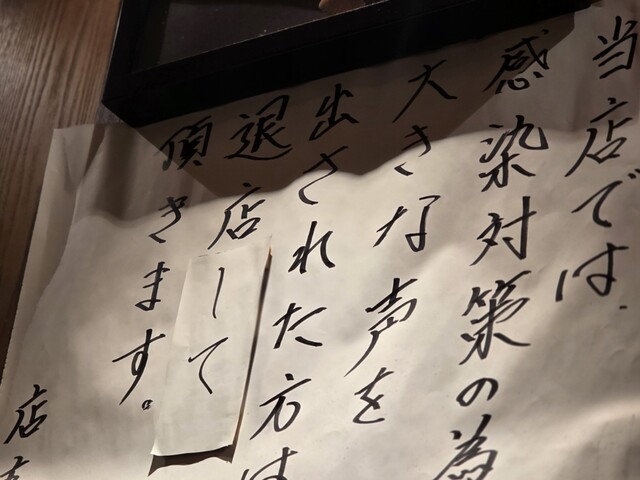 当店では、
感染対策の為
大きな声を
出された方は
退店して
頂きます。
店